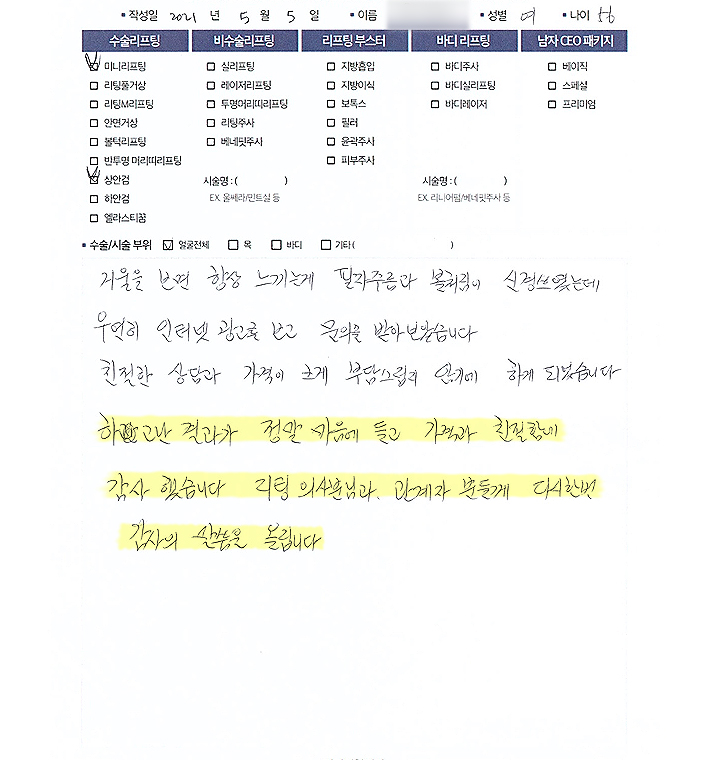 작성일 2021 년 5 월 5 일 이름 성별 여 나이 56
수술리프팅 비수술리프팅 리프팅 부스터 바디 리프팅 남자 CEO 패키지
미니리프팅 실리프팅 지방흡입 바디주사 베이직
리팅풀거상 레이저리프팅 지방이식 바디실리프팅 스페셜
리팅M리프팅 투명머리띠리프팅 보톡스 바디레이저 프리미엄
안면거상 리팅주사 필러
볼턱리프팅 베네핏주사 윤곽주사
반투명 머리띠리프팅 피부주사
상안검 시술명 : ( ) 시술명 : ( )
하안검 EX. 울쎄라/민트실 등 EX. 리니어펌/베네핏주사 등
엘라스티꿈
수술/시술 부위 얼굴전체 목 바디 기타 ( )
거울을 보면 항상 느끼는게 팔자주름과 볼처짐이 신경쓰였는데
우연히 인터넷 광고를 보고 문의를 받아보았습니다
친절한 상담과 가격이 크게 부담스럽지 않기에 하게 되었습니다
하고난 결과가 정말 마음에 들고 가격과 친절함에
감사 했습니다 리팅 의사선님과, 관계자 분들께 다시한번
감사의 말씀을 올립니다